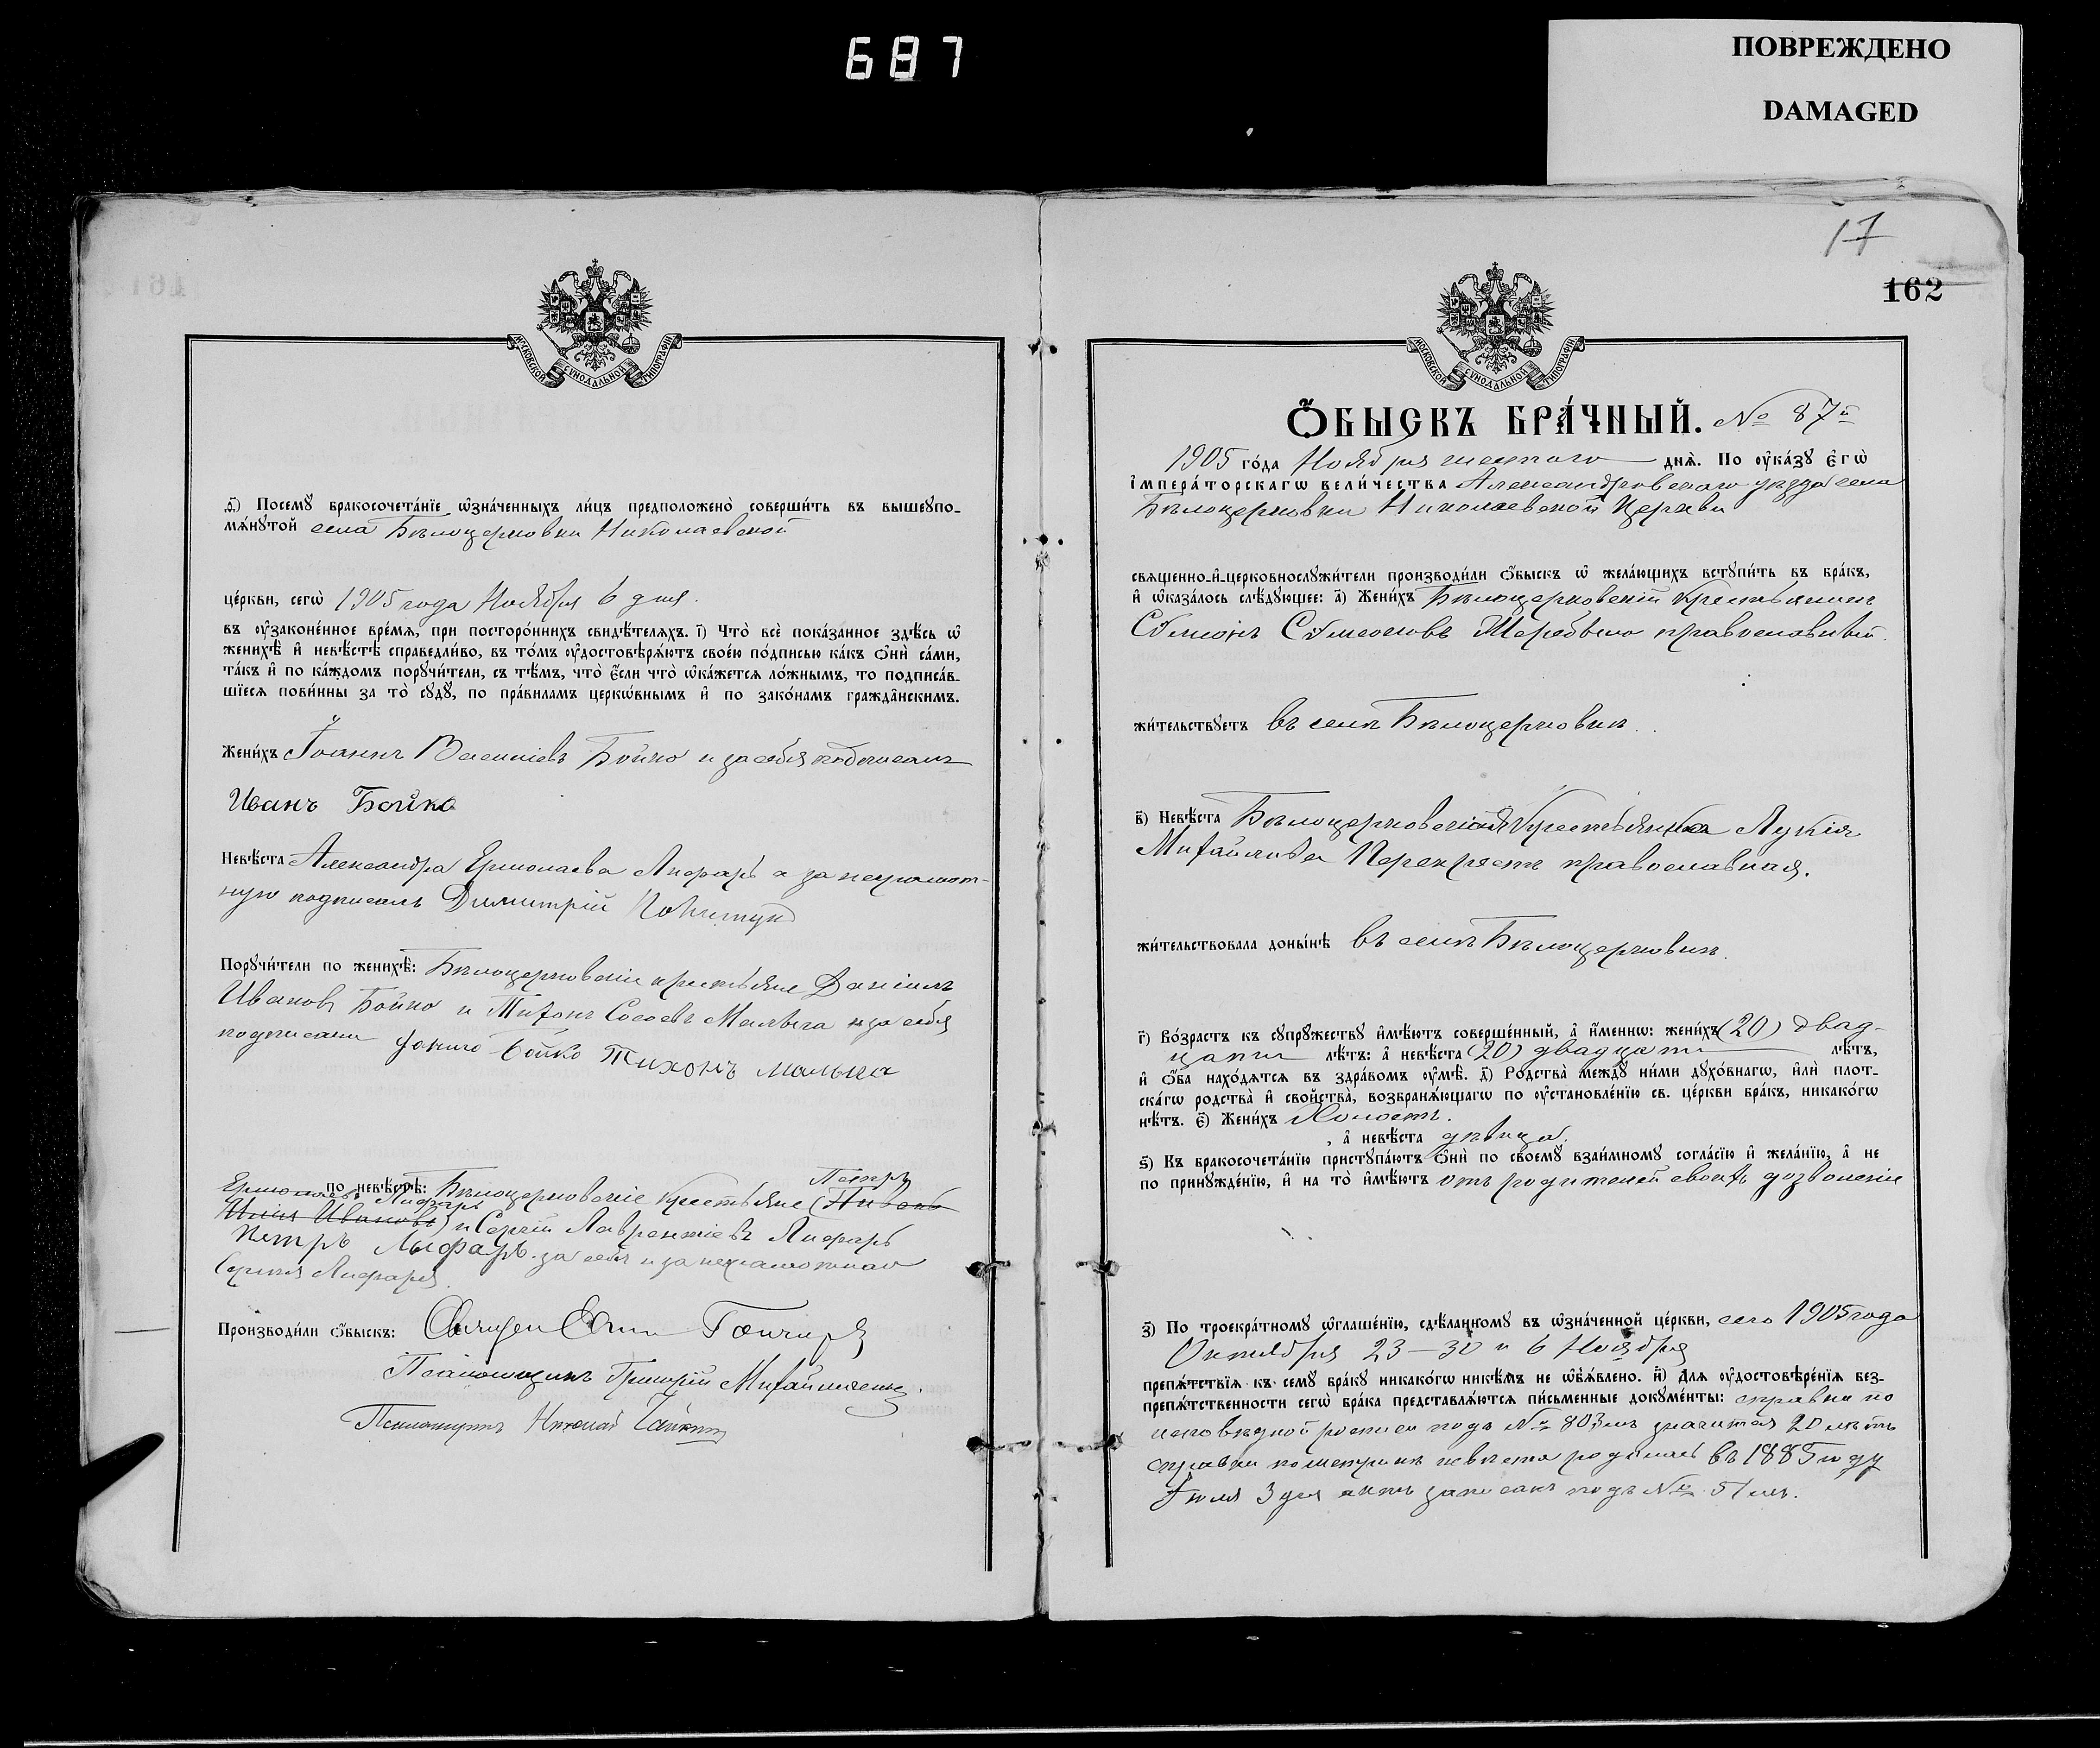 687
ПОВРЕЖДЕНО
DAMAGED
МОСКОВСКОЙ СѴНОДАЛЬНОЙ ТИПОГРАФІИ
ѳ҃) Посемꙋ̀ бракосочета́нїе ѡ҆зна́ченныхъ ли́цъ предположено̀ соверши́ть въ вышеупо-
мѧ́нꙋтой села Бѣлоцерковки Николаевской
це́ркви, сегѡ̀ 1905 года Ноября 6 дня.
въ ᲂу҆законе́нное вре́мѧ, при посторо́ннихъ свидѣ́телѧхъ. і҃) Что̀ всѐ пока́занное здѣ́сь ѡ҆
женихѣ̀ и҆ невѣ́стѣ справедли́во, въ то́мъ ᲂу҆достовѣрѧ́ютъ свое́ю по́дписью ка́къ ѻ҆нѝ са́ми,
та́къ и҆ по ка́ждомъ порꙋчи́тели, съ тѣ́мъ, что̀ є҆́сли что̀ ѡ҆ка́жетсѧ ло́жнымъ, то подписа́в-
шїесѧ пови́нны за то̀ сꙋдꙋ̀, по пра́виламъ церкѡ́внымъ и҆ по зако́намъ гражда́нскимъ.
Жени́хъ Іоаннъ Васильевъ Бойко и за себя подписалъ
Иванъ Бойко
Невѣ́ста Александра Ермолаева Лифарь а за неграмот-
ную подписалъ Димитрій
Порꙋчи́тели по женихѣ̀: Бѣлоцерковскіе крестьяне Даніилъ
Ивановъ Бойко и Тихонъ Малька и за себя
подписали Данило Бойко Тихонъ Малька
по невѣ́стѣ: Бѣлоцерковскіе крестьяне (Петръ
Ермолаевъ Лифарь
Ивановъ) и Сергій Лаврентіевъ Лифарь
Петръ Лыфарь за себя и за неграмотнаго
Сергія Лифаря.
Производи́ли ѻ҆́быскъ: Священ Гончаръ
Псаломщикъ Григорій Михайличенко.
Псаломщикъ Николай
17
162
МОСКОВСКОЙ СѴНОДАЛЬНОЙ ТИПОГРАФІИ
Ѻ҆́БЫСКЪ БРА́ЧНЫЙ. № 87й
1905 го́да Ноября шестого днѧ̀. По ᲂу҆ка́зꙋ є҆гѡ̀
і҆мпера́торскагѡ вели́чества Александровскаго уѣзда села
Бѣлоцерковки Николаевской Церкви
свѧщенно-и҆-церковнослꙋжи́тели производи́ли ѻ҆́быскъ ѡ҆ жела́ющихъ встꙋпи́ть въ бра́къ,
и҆ ѡ҆каза́лось слѣ́дꙋющее: а҃) Жени́хъ Бѣлоцерковскій крестьянинъ
Сѵмеонъ Сѵмеоновъ Жеребило православный.
жи́тельствꙋетъ въ селѣ Бѣлоцерковкѣ.
в҃) Невѣ́ста Бѣлоцерковская крестьянка Лукія
Михайлова Перекрестъ православная.
жи́тельствовала доны́нѣ въ селѣ Бѣлоцерковкѣ.
г҃) Во́зрастъ къ сꙋпрꙋ́жествꙋ и҆мѣ́ютъ соверше́нный, а҆ и҆́меннѡ: жени́хъ (20) двад-
цати лѣ́тъ: а҆ невѣ́ста (20) двадцати лѣ́тъ,
и҆ ѻ҆́ба нахо́дѧтсѧ въ здра́вомъ ᲂу҆мѣ̀. д҃) Родства̀ междꙋ̀ ни́ми дꙋхо́внагѡ, и҆лѝ плот-
ска́гѡ родства̀ и҆ сво́йства, возбранѧ́ющагѡ по ᲂу҆становле́нїю св. це́ркви бра́къ, никако́гѡ
нѣ́тъ. є҃) Жени́хъ холостъ.
, а҆ невѣ́ста дѣвица.
ѕ҃) Къ бракосочета́нїю пристꙋпа́ютъ ѻ҆нѝ по своемꙋ̀ взаи́мномꙋ согла́сїю и҆ жела́нїю, а҆ не
по принꙋжде́нїю, и҆ на то̀ и҆мѣ́ютъ отъ родителей своихъ дозволеніе
з҃) По троекра́тномꙋ ѡ҆глаше́нїю, сдѣ́ланномꙋ въ ѡ҆зна́ченной це́ркви, сего 1905 года
Октября 23 — 30 и 6 Ноября
препѧ́тствїѧ къ семꙋ̀ бра́кꙋ никако́гѡ никѣ́мъ не ѡ҆б̾ѧ́влено. и҃) Длѧ ᲂу҆достовѣре́нїѧ без-
препѧ́тственности сегѡ̀ бра́ка представлѧ́ютсѧ пи́сьменные докꙋме́нты: справка по
исповѣдной росписи подъ № 80 значится 20 лѣтъ
справки по метрикѣ невѣста родилась въ 1885 году
Іюля 3 дня актъ записанъ подъ № 51мъ.